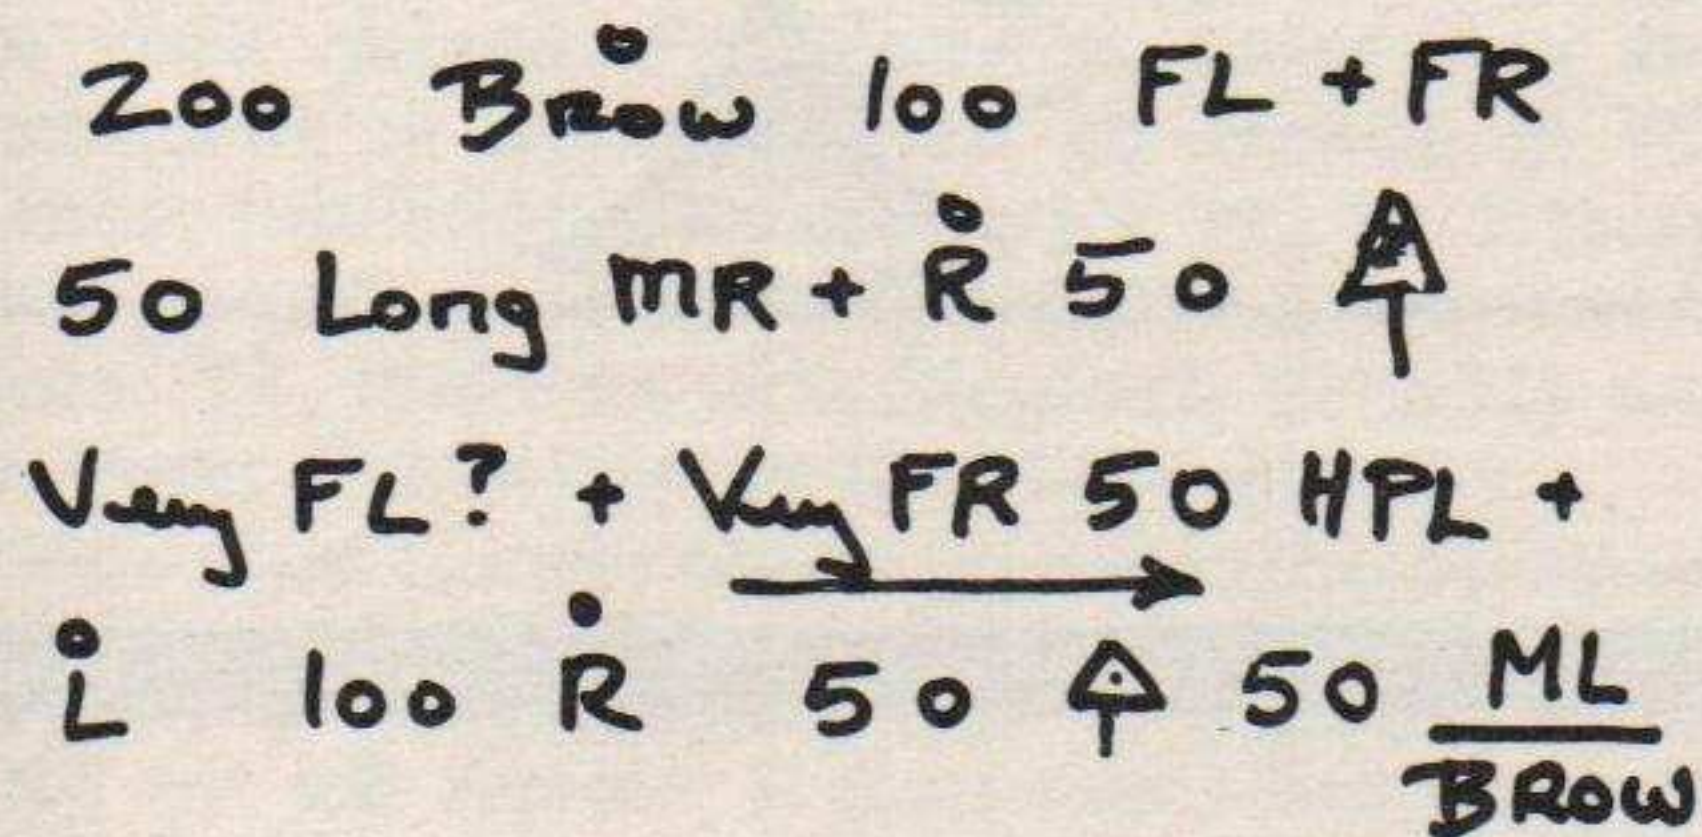 200 BROW 100 FL + FR
50 Long MR + R 50
Very FL? + Very FR 50 HPL +
L 100 R 50 50 ML
BROW